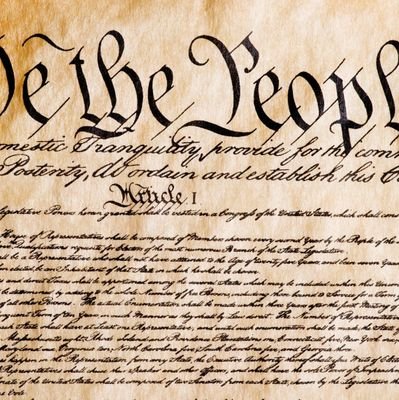 We the Peopl
omestic Tranquility, provide for the com
Posterity, do ordain and establish this C
Article I
egislative Powers herein granted shall be vested in a Congress of the United States, which shall cons
House of Representatives shall be composed of Members chosen every second Year by the People of the
Qualifications requisite for Electors of the most numerous Branch of the State Legislature.
all be a Representative who shall not have attained to the Age of twenty five Years and been seven Years
en elected, be an Inhabitant of that State in which he shall be chosen.
and direct Taxes shall be apportioned among the several States which may be included within this Union
Number of free Persons, including those bound to Service for a Term
of all other Persons. The actual Enumeration shall be made within three Years after the first Meeting of
Term of ten Years, in such Manner as they shall by Law direct. The Number of Representatives
each State shall have at Least one Representative; and until such enumeration shall be made, the State of
Massachusetts eight, Rhode Island and Providence Plantations one, Connecticut five, New York
Maryland six, Virginia ten, North Carolina five, South Carolina five, and Georgia three.
happen in the Representation from any State, the Executive Authority thereof shall issue Writs of Elec
Representatives shall chuse their Speaker and other Officers; and shall have the sole Power of Impeach
nate of the United States shall be composed of two Senators from each State, chosen by the Legislature the
one Vote.